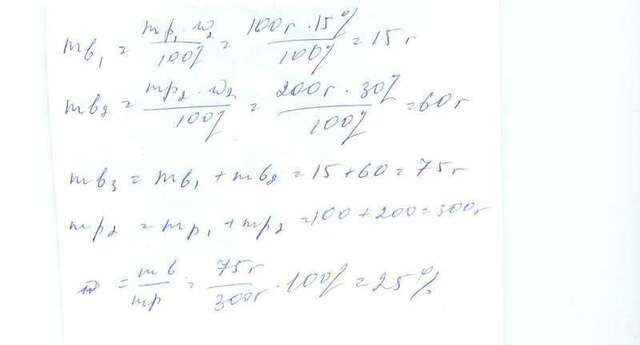 mв₁ = mр₁ · w₂ / 100% = 100г · 15% / 100% = 15г
mв₂ = mр₂ · w₂ / 100% = 200г · 30% / 100% = 60г
mв₃ = mв₁ + mв₂ = 15 + 60 = 75г
mр₂ = mр₁ + mр₂ = 100 + 200 = 300г
w = mв / mр = 75г / 300г · 100% = 25%